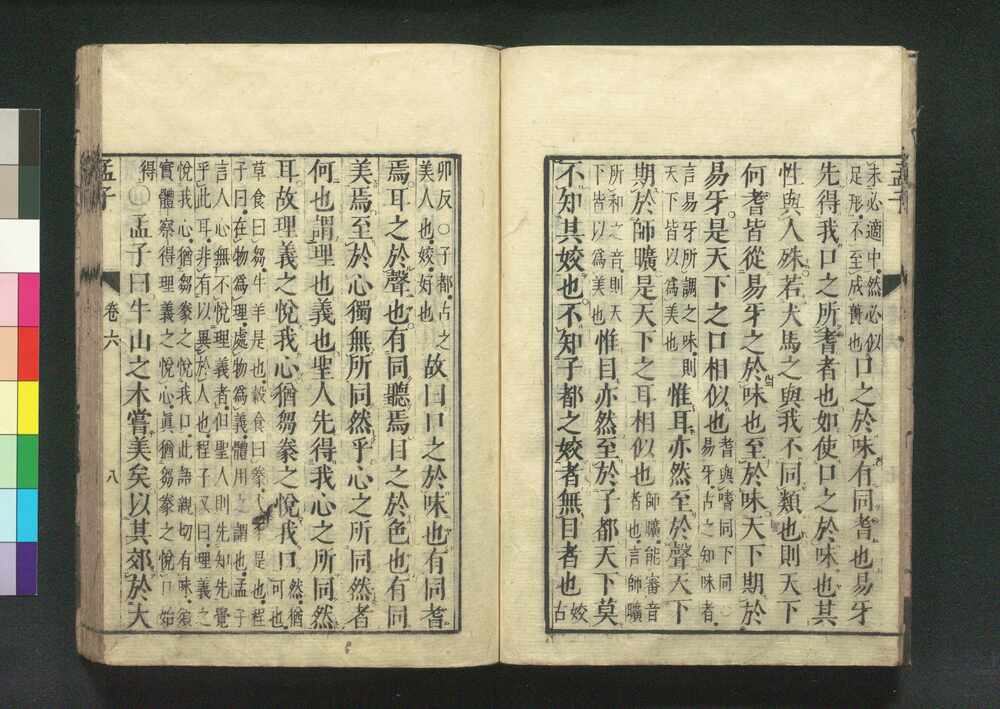 孟子
未必適中然必似
足形不至成蕢也
口之於味有同耆也易牙
先得我口之所耆者也如使口之於味也其
性與人殊若犬馬之與我不同類也則天下
何耆皆從易牙之於味也至於味天下期於
易牙是天下之口相似也
耆與嗜同下同○
易牙古之知味者
言易牙所調之味則
天下皆以爲美也
惟耳亦然至於聲天下
期於師曠是天下之耳相似也
師曠能審音
者也言師曠
所和之音則天
下皆以爲美也
惟目亦然至於子都天下莫
不知其姣也不知子都之姣者無目者也
姣
古
卯反○子都古之
美人也姣好也
故曰口之於味也有同耆
焉耳之於聲也有同聽焉目之於色也有同
美焉至於心獨無所同然乎心之所同然者
何也謂理也義也聖人先得我心之所同然
耳故理義之悅我心猶芻豢之悅我口
然猶
可也
草食曰芻牛羊是也穀食曰豢豕是也程
子曰在物爲理處物爲義體用之謂也孟子
言人心無不悅理義者但聖人則先知先覺
乎此耳非有以異於人也程子又曰理義之
悅我心猶芻豢之悅我口此語親切有味須
實體察得理義之悅心眞猶芻豢之悅口始
得
孟子曰牛山之木嘗美矣以其郊於大
孟子 卷六 八